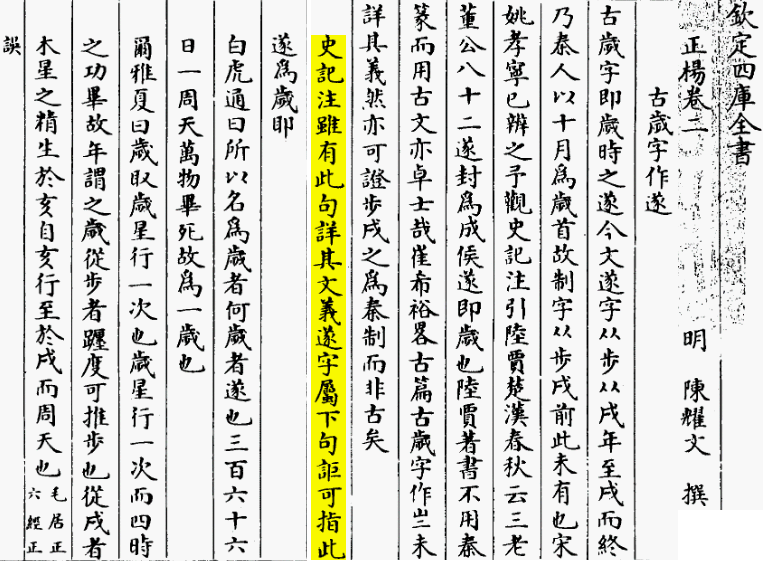 欽定四庫全書
正楊卷二 明 陳耀文 撰
古歲字作遂
古歲字即歲時之遂今文遂字从步从戌年至戌而終
乃秦人以十月爲歲首故制字从步戌前此未有也宋
姚孝寧已辨之予觀史記注引陸賈楚漢春秋云三老
董公八十二遂封爲成侯遂即歲也陸賈著書不用秦
篆而用古文亦卓士哉崔希裕畧古篇古歲字作亗未
詳其義然亦可證步戌之爲秦制而非古矣
史記注雖有此句詳其文義遂字屬下句詎可指此
遂爲歲耶
白虎通曰所以名爲歲者何歲者遂也三百六十六
日一周天萬物畢死故爲一歲也
爾雅夏曰歲取歲星行一次也歲星行一次而四時
之功畢故年謂之歲從步者躔度可推步也從戌者
木星之精生於亥自亥行至於戌而周天也 毛居正
六經正
誤